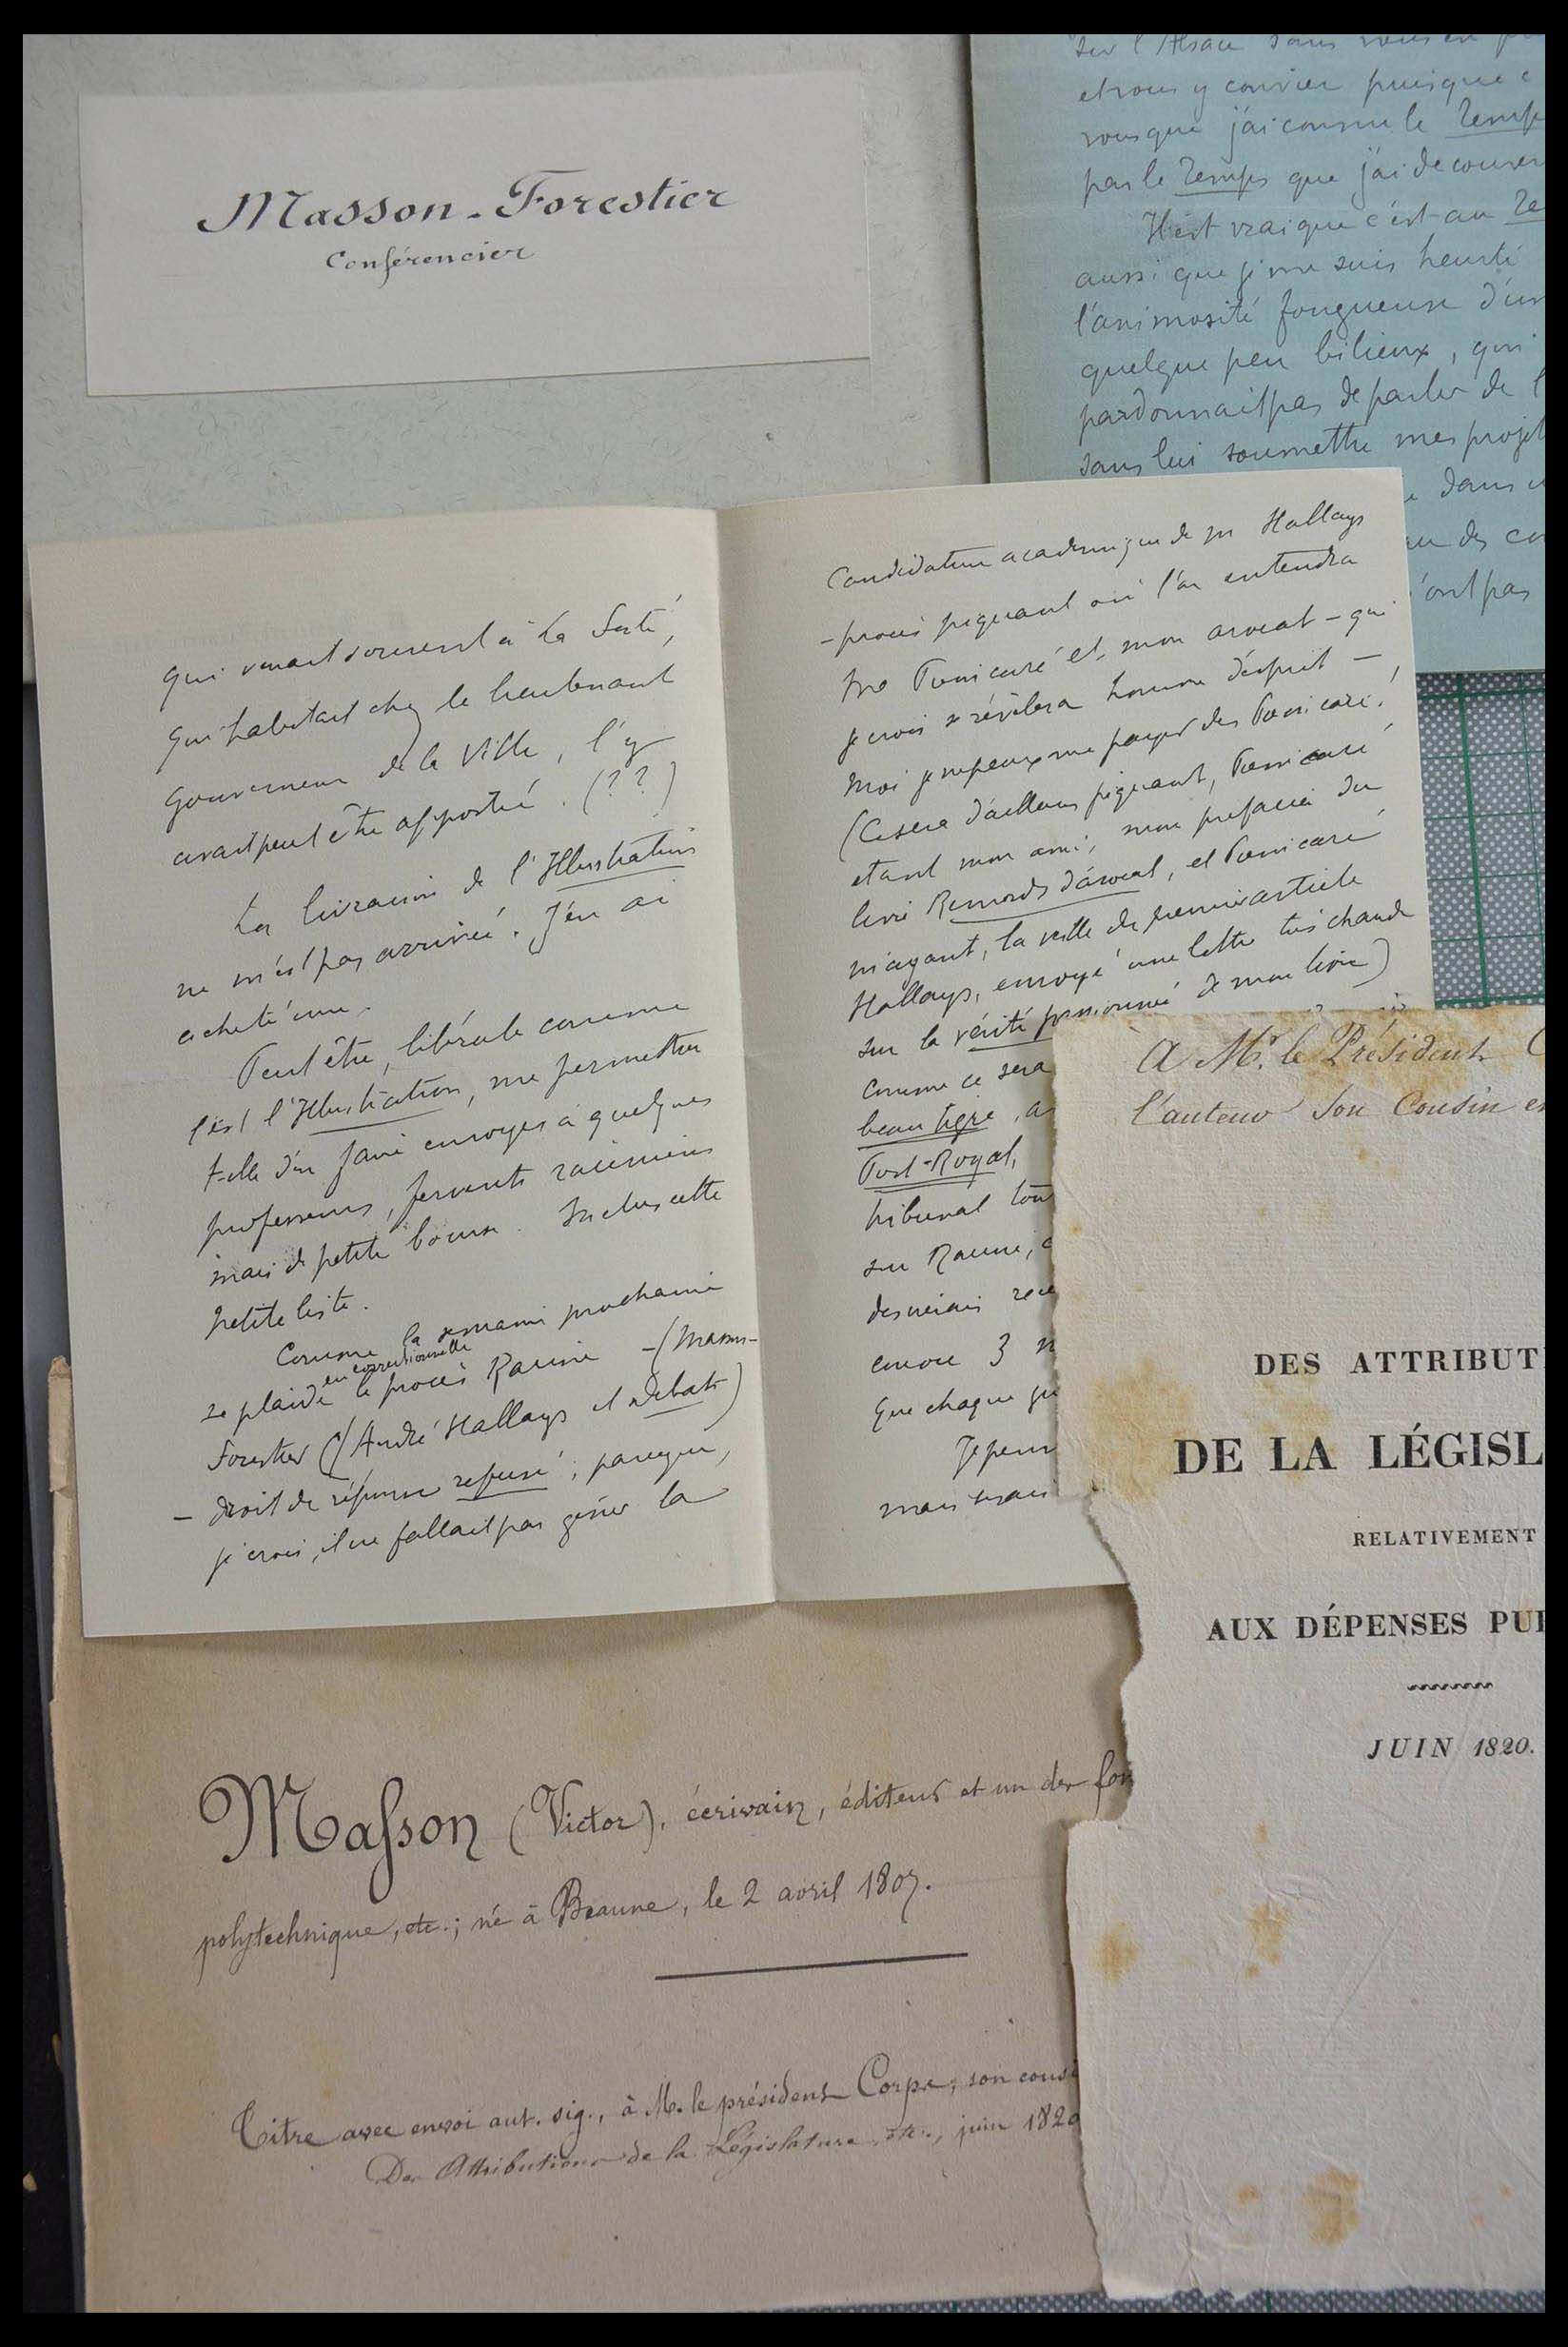 Masson-Forestier
Conférencier
sur l'Alsace sans vous en
et vous y convier puisque c
vous que j'ai connu le Temps
par le Temps que j'ai découver
Il est vrai que c'est au Te
aussi que je me suis heurté
l'animosité fougueuse d'un
quelque peu bilieux, qui
pardonnait pas de parler de l
sans lui soumettre mes projet
dans u
au des co
'ont pas
qui venait souvent à la Ferté,
qui habitait chez le lieutenant
gouverneur de la Ville, l'y
avait peut être apporté. (??)
La livraison de l'Illustration
ne m'est pas arrivée. J'en ai
acheté une.
Peut être, libérale comme
l'est l'Illustration, me permettra
t-elle d'en faire envoyer à quelques
professeurs, fervents raciniens
mais de petite bourse. Inclus cette
petite liste.
Comme la semaine prochaine
en correctionnelle
se plaide le procès Racine -(Masson-
Forestier (/André Hallays et Débats)
- droit de réponse refusé, parceque,
je crois, il ne fallait pas gêner la
Candidature académique de M Hallays
- procès piquant où l'on entendra
Me Poincaré et mon avocat - qui
je crois se révèlera homme d'esprit -
Moi je ne peux me payer des Poincaré,
(Ce sera d'ailleurs piquant, Poincaré
étant mon ami, mon préfacier du
livre Remords d'avocat, et Poincaré
m'ayant, la veille du premier article
Hallays, envoyé une lettre très chaude
sur la vérité passionnée de mon livre)
Comme ce sera
beau tigre, a
Port-Royal,
tribunal tou
sur Racine,
desirerais rece
encore 3 n
que chaque
Je pen
mais
À Mr. le Président C
l'auteur son Cousin e
DES ATTRIBUT
DE LA LÉGISL
RELATIVEMENT
AUX DÉPENSES PU
JUIN 1820.
Masson (Victor), écrivain, éditeur et un des fon
polytechnique, etc.; né à Beaune, le 2 avril 1807.
Titre avec envoi aut. sig., à M. le président Corpe, son cousi
Des Attributions de la Législature, etc., juin 1820